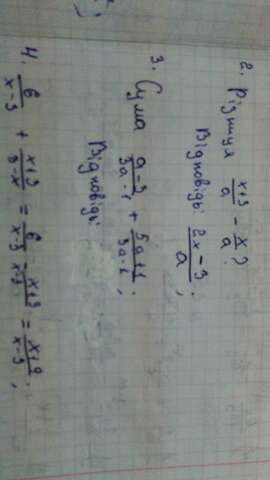 2. Різниця \frac{x+3}{a} - \frac{x}{a}?
Відповіді \frac{2x-3}{a};
3. Сума \frac{a-3}{3a-1} + \frac{5a+1}{3a-1};
Відповіді
4. \frac{6}{x-3} + \frac{x+3}{3-x} = \frac{6}{x-3} - \frac{x+3}{x-3} = \frac{x+9}{x-3};